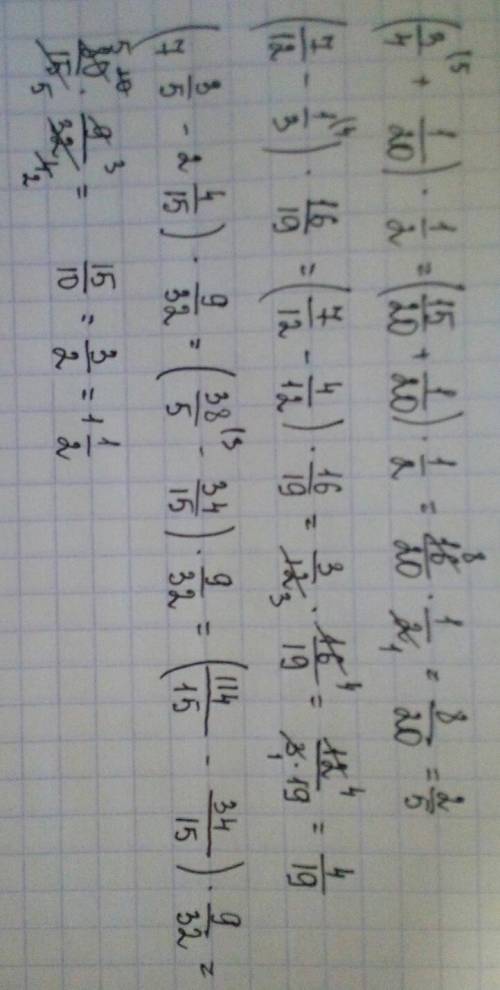 (3/4 ¹⁵ + 1/20) · 1/2 = (15/20 + 1/20) · 1/2 = 16⁸/20 · 1/2₁ = 8/20 = 2/5
(7/12 - 1/3 ⁽⁴) · 16/19 = (7/12 - 4/12) · 16/19 = 3/12₃ · 16⁴/19 = 12⁴/3₁·19 = 4/19
(7 3/5 - 2 4/15) · 9/32 = (38/5 ⁽³ - 34/15) · 9/32 = (114/15 - 34/15) · 9/32 =
80/15 5 · 9³/32 = 15/10 = 3/2 = 1 1/2